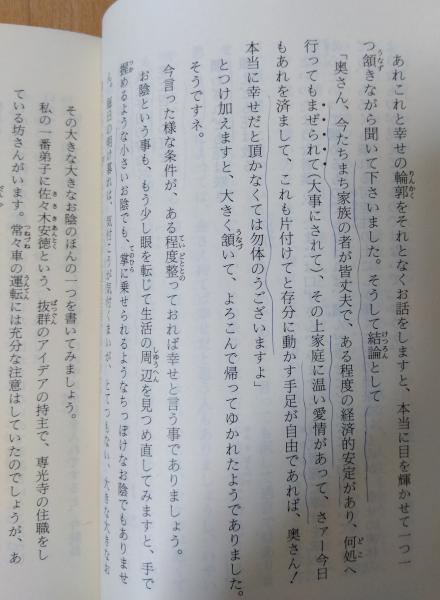 あれこれと幸せの輪郭をそれとなくお話をしますと、本当に目を輝かせて一つ一
つ頷きながら聞いて下さいました。そうして結論として
「奥さん、今たちまち家族の者が皆丈夫で、ある程度の経済的安定があり、何処へ
行ってもまぜられて(大事にされて)、その上家庭に温い愛情があって、さァー今日
もあれを済まして、これも片付けてと存分に動かす手足が自由であれば、奥さん!
本当に幸せだと頂かなくては勿体のうございますよ」
とつけ加えますと、大きく頷いて、よろこんで帰ってゆかれたようでありました。
そうですネ。
今言った様な条件が、ある程度整っておれば幸せと言う事でありましょう。
お陰という事も、もう少し眼を転じて生活の周辺を見つめ直してみますと、手で
握めるような小さいお陰でも、掌に乗せられるようなちっぽけなお陰でもありませ
ん。毎日の明け暮れは、気付こうが気付くまいが、とてつもない、大きな大きなお
その大きな大きなお陰のほんの一つを書いてみましょう。
私の一番弟子に佐々木安徳という、抜群のアイデアの持主で、専光寺の住職をし
ている坊さんがいます。常々車の運転には充分な注意はしていたのでしょうが、あ